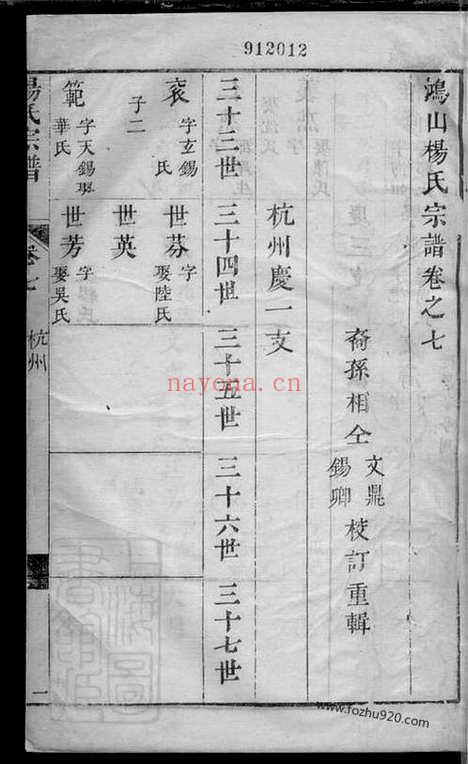 912012
鴻山楊氏宗譜卷之七
裔孫相仝
文鼎
錫卿
校訂重輯
杭州慶一支
三十三世
三十四世
三十五世
三十六世
三十七世
衮
字玄錫
氏
子二
世芬
字
娶陸氏
世英
範
字天錫娶
華氏
世芳
字
娶吳氏
楊氏宗譜
卷七
杭州
一
nayona.cn
www.fozhu920.com